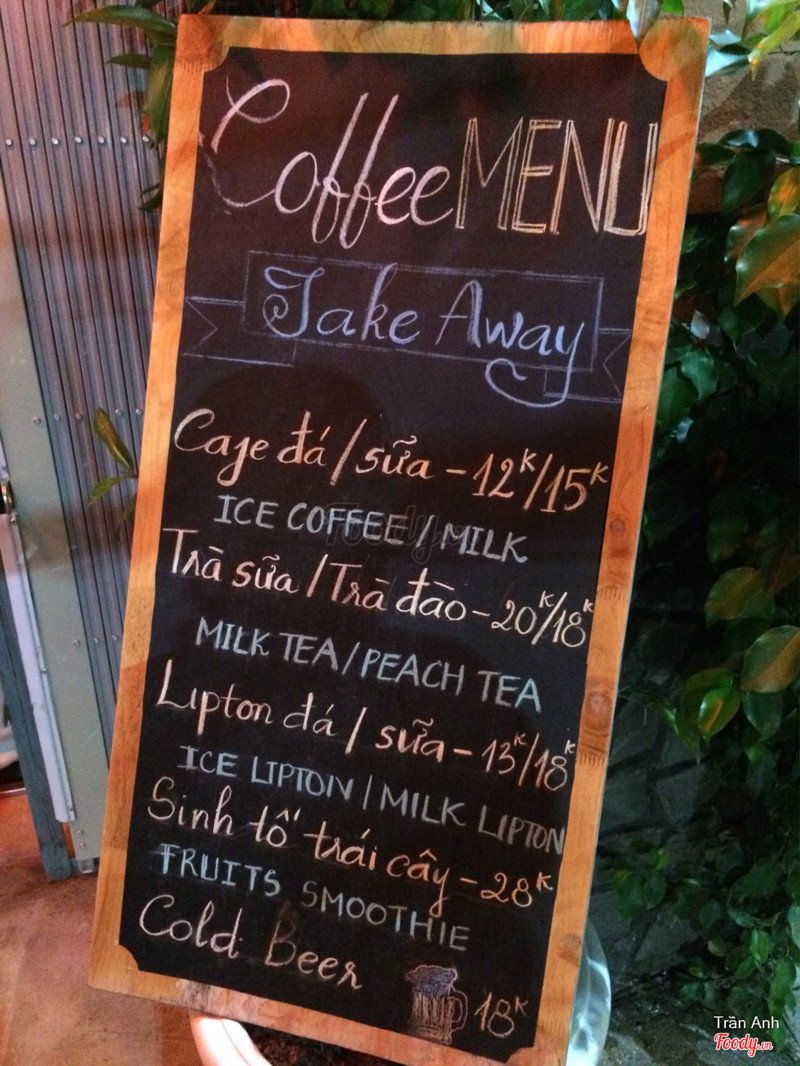 Coffee MENU
Take Away
Cafe đá / sữa - 12K/15K
ICE COFFEE / MILK
Trà sữa / Trà đào - 20K/18K
MILK TEA / PEACH TEA
Lipton đá / sữa - 13K/18K
ICE LIPTON | MILK LIPTON
Sinh tố trái cây - 28K
FRUITS SMOOTHIE
Cold Beer 18K
Foody.vn
Trần Anh
Foody.vn